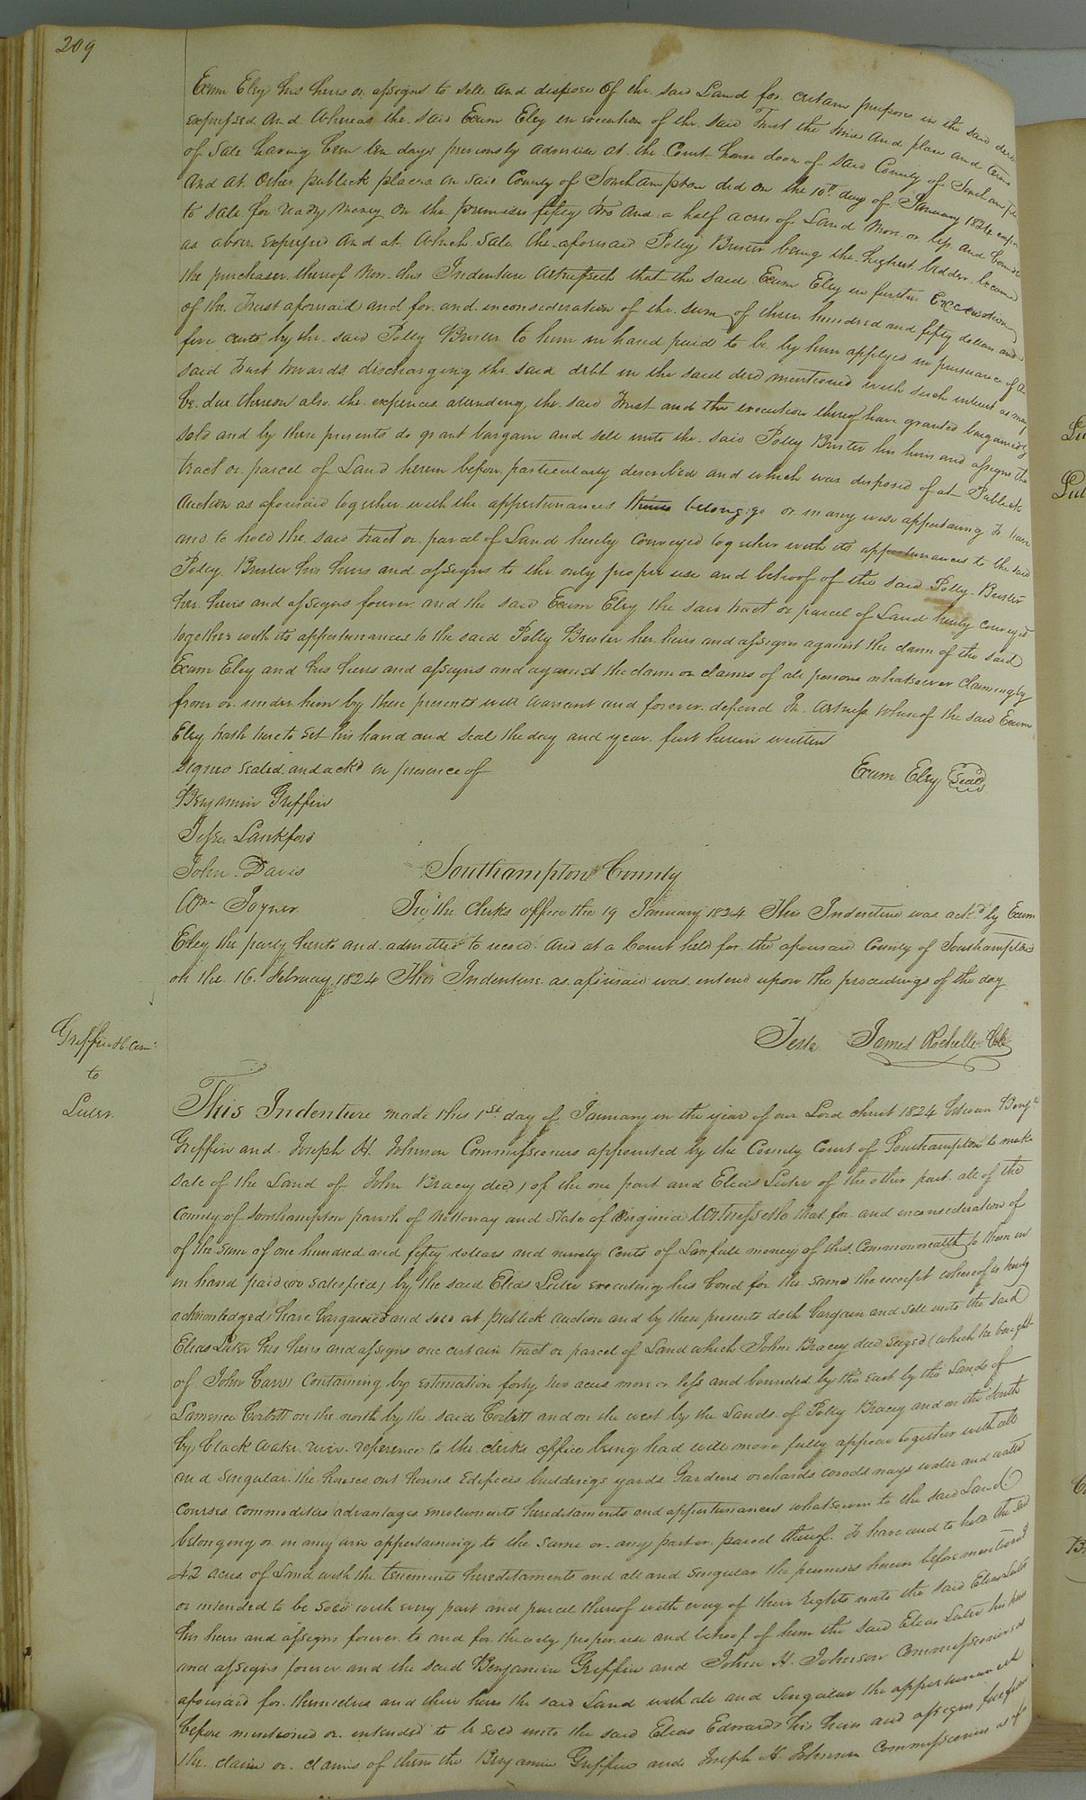 209
Exum Eley his heirs or assigns to sell and dispose of the said Land for certain purposes in the said deed
expressed and Whereas the said Exum Eley in execution of the said Trust the time and place and terms
of Sale having been ten days previously advertised at the Court house door of said County of Southampton
and at other publick places in said County of Southampton did on the 10th day of January 1824 expose
to sale for ready money on the premises fifty two and a half acres of Land more or less and bounded
as above expressed and at which sale the aforesaid Polly Buster being the highest bidder became
the purchaser thereof Now this Indenture Witnesseth that the said Exum Eley in further Execution
of the Trust aforesaid and for and in consideration of the sum of three hundred and fifty dollars and
five cents by the said Polly Buster to him in hand paid to be by him applyed in pursuance of the
said Trust towards discharging the said debt in the said deed mentioned with such interest as may
be due thereon also the expences attending the said Trust and the execution thereof have granted bargained
sold and by these presents do grant bargain and sell unto the said Polly Buster his heirs and assigns the
tract or parcel of Land herein before particularly described and which was disposed of at Publick
Auction as aforesaid together with the appurtenances belonging or in any wise appertaining To have
and to hold the said tract or parcel of Land hereby conveyed together with its appurtenances to the said
Polly Buster his heirs and assigns to the only proper use and behoof of the said Polly Buster
her heirs and assigns forever and the said Exum Eley the said tract or parcel of Land hereby conveyed
together with its appurtenances to the said Polly Buster her heirs and assigns against the claim of the said
Exum Eley and his heirs and assigns and against the claim or claims of all persons whatsoever claiming by
from or under him by these presents will warrant and forever defend In Witness whereof the said Exum
Eley hath hereto set his hand and seal the day and year first herein written
Signed sealed and ackd in presence of Exum Eley Seal
Benjamin Griffin
Jesse Lankford
John Davis Southampton County
Wm Joyner In the Clerks office the 19 January 1824 This Indenture was ackd by Exum
Eley the party hereto and admitted to record And at a Court held for the aforesaid County of Southampton
on the 16 February 1824 This Indenture as aforesaid was entered upon the proceedings of the day
Teste James Rochelle Clk
Griffin & Com
to
Luter
This Indenture made this 1st day of January in the year of our Lord christ 1824 between Benjn
Griffin and Joseph H. Johnson Commissioners appointed by the County Court of Southampton to make
sale of the Land of John Bracey decd of the one part and Elias Luter of the other part all of the
County of Southampton parish of Nottoway and State of Virginia Witnesseth that for and in consideration of
of the sum of one hundred and fifty dollars and ninety cents of Lawfull money of this Commonwealth to them in
in hand paid by the said Elias Luter executing his bond for the same the receipt whereof is hereby
acknowledged have bargained and sold at publick auction and by these presents doth bargain and sell unto the said
Elias Luter his heirs and assigns one certain tract or parcel of Land which John Bracey decd seized (which he bought
of John Carr) Containing by estimation forty two acres more or less and bounded by the East by the Lands of
Lamenca Corbitt on the north by the said Corbitt and on the west by the Lands of Polly Bracey and on the South
by black water river reference to the clerks office being had will more fully appear together with all
and singular the houses out houses Edifices buildings yards Gardens orchards woods ways water and water
courses commodities advantages emoluments hereditaments and appurtenances whatsoever to the said Land
belonging or in any wise appertaining to the same or any part or parcel thereof To have and to hold the said
42 acres of Land with the tenements hereditaments and all and singular the premises herein before mentioned
or intended to be sold with every part and parcel thereof with every of their rights unto the said Elias Luter
his heirs and assigns forever to and for the only proper use and behoof of him the said Elias Luter his heirs
and assigns forever and the said Benjamin Griffin and John H. Johnson Commissioners
aforesaid for themselves and their heirs the said Land with all and singular the appurtenances
before mentioned or intended to be sold unto the said Elias Edwards his heirs and assigns free from
the claim or claims of them the Benjamin Griffin and Joseph H Johnson Commissioners as